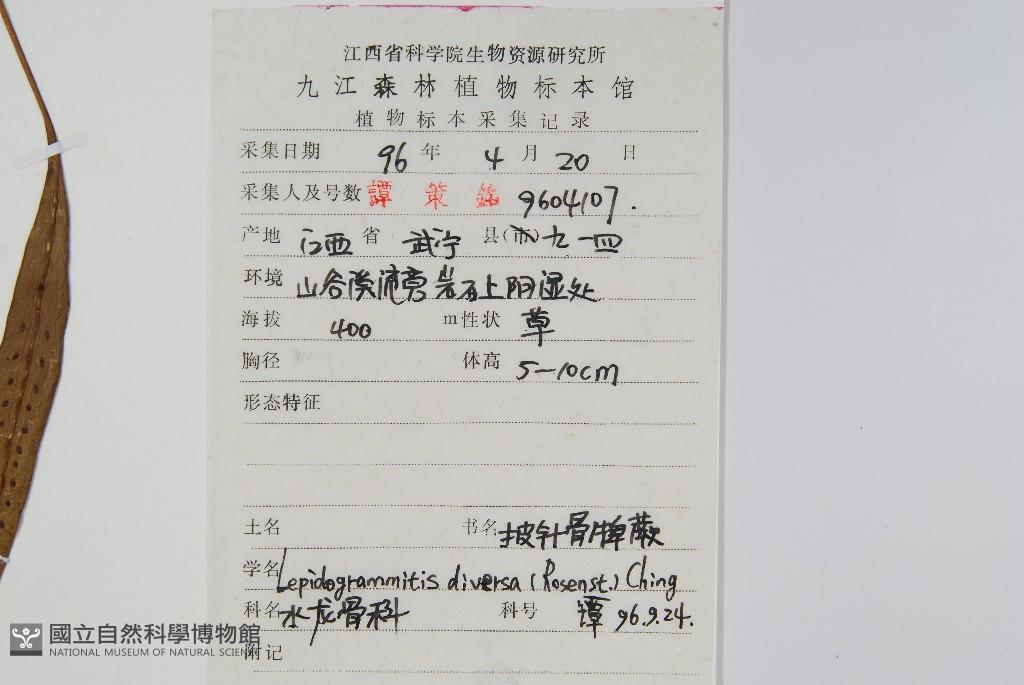 江西省科学院生物资源研究所
九江森林植物标本馆
植物标本采集记录
采集日期 96 年 4 月 20 日
采集人及号数 譚策銘 9604107.
产地 江西 省 武宁 县(市) 九一四
环境 山谷溪沛旁岩石上阴湿处
海拔 400 m 性状 草
胸径 体高 5-10cm
形态特征
土名 书名 披针骨牌蕨
学名 Lepidogrammitis diversa (Rosenst.) Ching
科名 水龙骨科 科号 譚 96.9.24.
附记
國立自然科學博物館
NATIONAL MUSEUM OF NATURAL SCIENCE